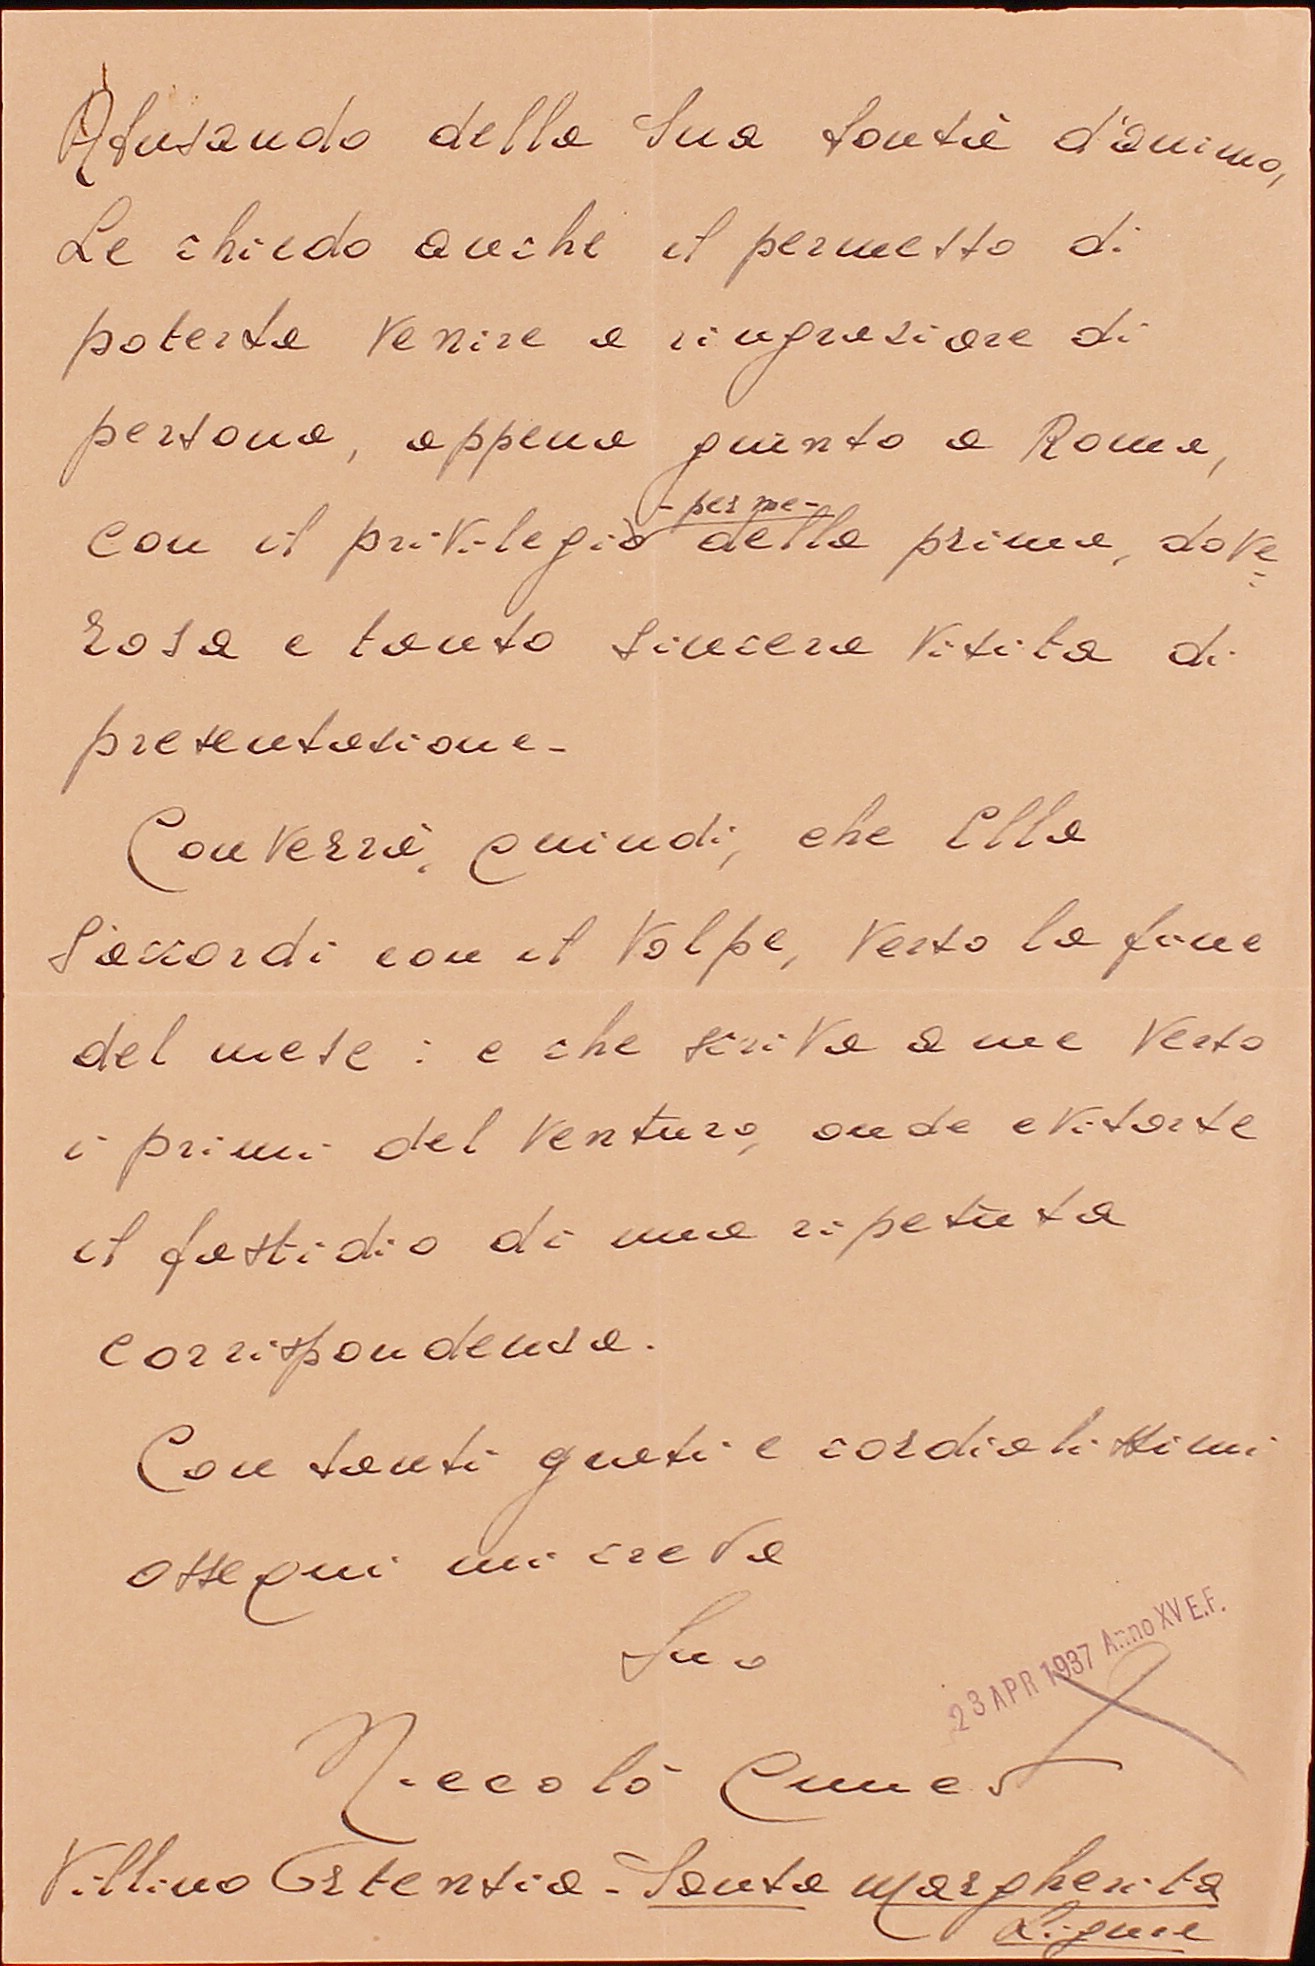 Abusando della Sua bontà d'animo,
Le chiedo anche il permesso di
poterla venire a ringraziare di
persona, appena giunto a Roma,
- per me -
con il privilegio della prima, dove=
rosa e tanto sincera visita di
presentazione -
Converrà, quindi, che Ella
s'accordi con il Volpe, verso la fine
del mese: e che scriva a me verso
i primi del venturo, onde evitarle
il fastidio di una ripetuta
corrispondenza.
Con tanti grati e cordialissimi
ossequi mi creda
Suo
23 APR 1937 Anno XV E.F.
Niccolò Cuneo
Villino Ortensia - Santa Margherita
Ligure